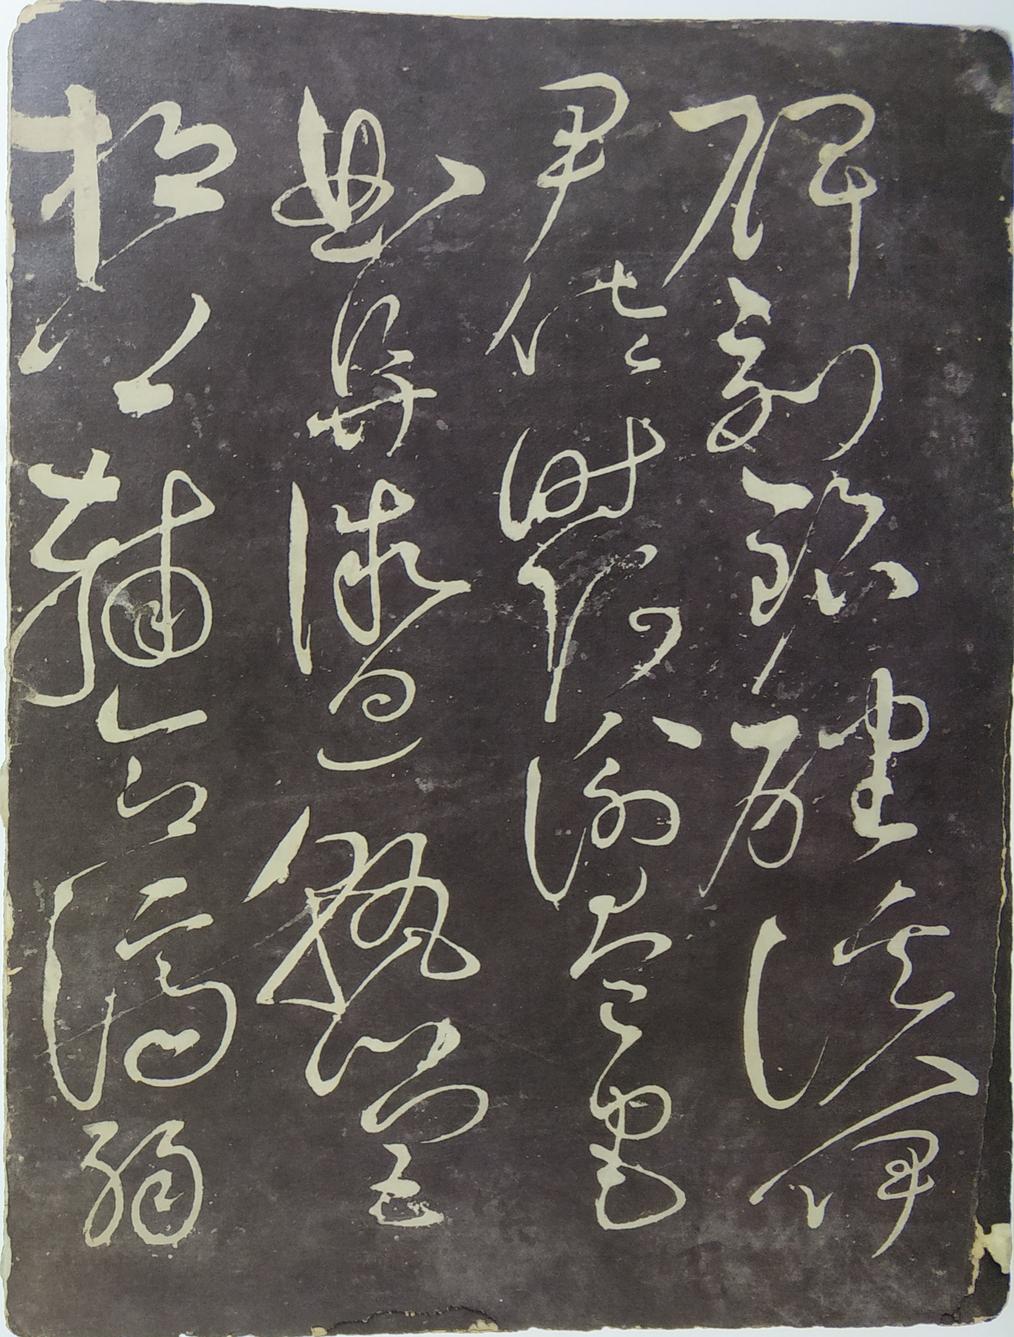 碑刻銘磻溪伊
尹佐時阿衡奄宅
曲阜微旦孰營
桓公輔合濟弱